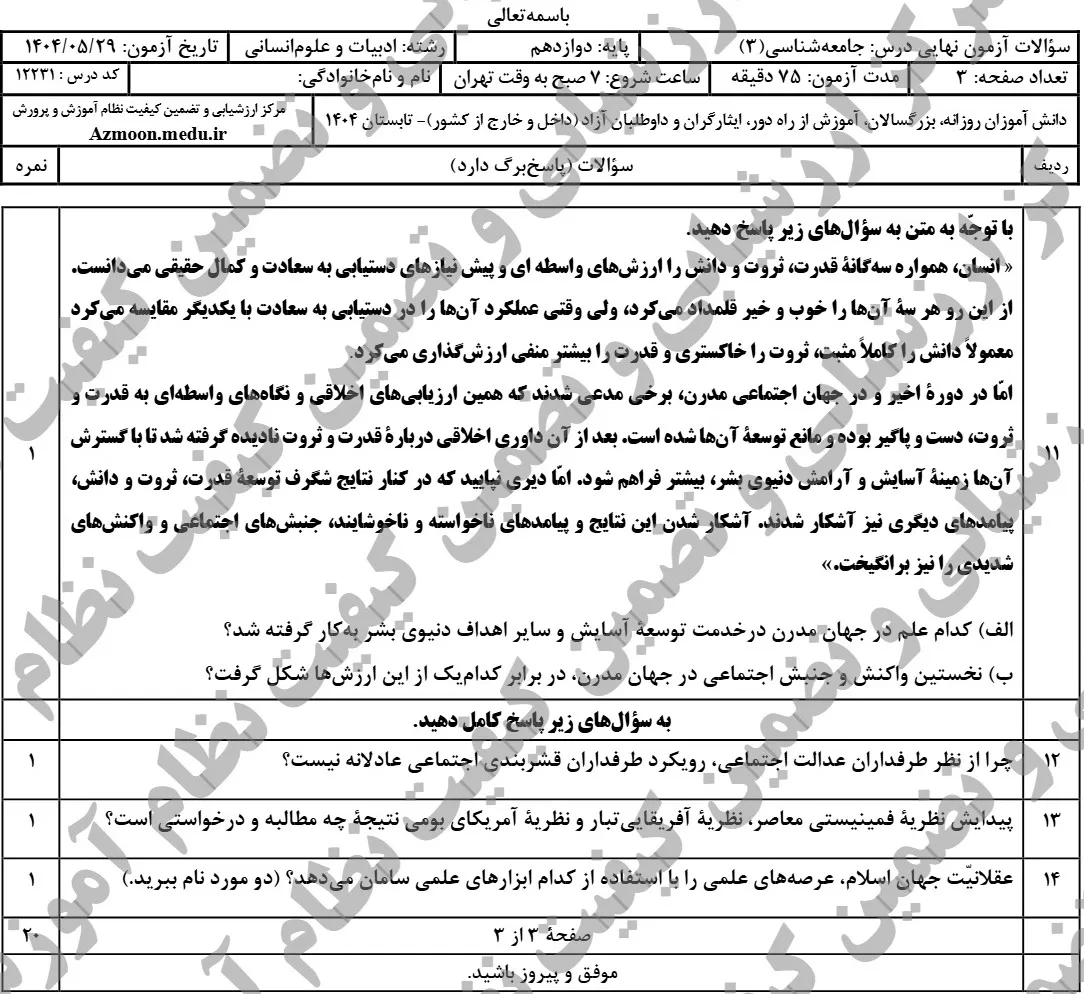 باسمه‌تعالی
سؤالات آزمون نهایی درس: جامعه‌شناسی(۳) پایه: دوازدهم رشته: ادبیات و علوم‌انسانی تاریخ آزمون: ۱۴۰۴/۰۵/۲۹
تعداد صفحه: ۳ مدت آزمون: ۷۵ دقیقه ساعت شروع: ۷ صبح به وقت تهران نام و نام‌خانوادگی: کد درس : ۱۲۲۳۱
دانش آموزان روزانه، بزرگسالان، آموزش از راه دور، ایثارگران و داوطلبان آزاد (داخل و خارج از کشور)- تابستان ۱۴۰۴ مرکز ارزشیابی و تضمین کیفیت نظام آموزش و پرورش
Azmoon.medu.ir
ردیف سؤالات (پاسخ‌برگ دارد) نمره
با توجّه به متن به سؤال‌های زیر پاسخ دهید.
« انسان، همواره سه‌گانهٔ قدرت، ثروت و دانش را ارزش‌های واسطه ای و پیش نیازهای دستیابی به سعادت و کمال حقیقی می‌دانست.
از این رو هر سهٔ آن‌ها را خوب و خیر قلمداد می‌کرد، ولی وقتی عملکرد آن‌ها را در دستیابی به سعادت با یکدیگر مقایسه می‌کرد
معمولاً دانش را کاملاً مثبت، ثروت را خاکستری و قدرت را بیشتر منفی ارزش‌گذاری می‌کرد.
امّا در دورهٔ اخیر و در جهان اجتماعی مدرن، برخی مدعی شدند که همین ارزیابی‌های اخلاقی و نگاه‌های واسطه‌ای به قدرت و
۱۱ ثروت، دست و پاگیر بوده و مانع توسعهٔ آن‌ها شده است. بعد از آن داوری اخلاقی دربارهٔ قدرت و ثروت نادیده گرفته شد تا با گسترش ۱
آن‌ها زمینهٔ آسایش و آرامش دنیوی بشر، بیشتر فراهم شود. امّا دیری نپایید که در کنار نتایج شگرف توسعهٔ قدرت، ثروت و دانش،
پیامدهای دیگری نیز آشکار شدند. آشکار شدن این نتایج و پیامدهای ناخواسته و ناخوشایند، جنبش‌های اجتماعی و واکنش‌های
شدیدی را نیز برانگیخت.»
الف) کدام علم در جهان مدرن درخدمت توسعهٔ آسایش و سایر اهداف دنیوی بشر به‌کار گرفته شد؟
ب) نخستین واکنش و جنبش اجتماعی در جهان مدرن، در برابر کدام‌یک از این ارزش‌ها شکل گرفت؟
به سؤال‌های زیر پاسخ کامل دهید.
۱۲ چرا از نظر طرفداران عدالت اجتماعی، رویکرد طرفداران قشربندی اجتماعی عادلانه نیست؟ ۱
۱۳ پیدایش نظریهٔ فمینیستی معاصر، نظریهٔ آفریقایی‌تبار و نظریهٔ آمریکای بومی نتیجهٔ چه مطالبه و درخواستی است؟ ۱
۱۴ عقلانیّت جهان اسلام، عرصه‌های علمی را با استفاده از کدام ابزارهای علمی سامان می‌دهد؟ (دو مورد نام ببرید.) ۱
صفحهٔ ۳ از ۳ ۲۰
موفق و پیروز باشید.